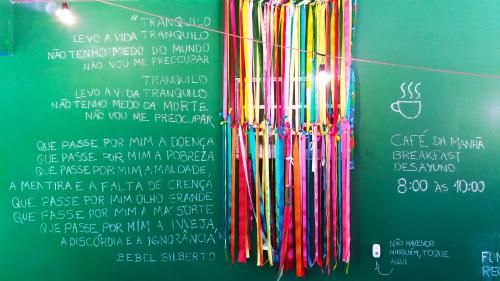 "TRANQUILO
LEVO A VIDA TRANQUILO
NÃO TENHO MEDO DO MUNDO
NÃO VOU ME PREOCUPAR
TRANQUILO
LEVO A VIDA TRANQUILO
NÃO TENHO MEDO DA MORTE
NÃO VOU ME PREOCUPAR
QUE PASSE POR MIM A DOENÇA
QUE PASSE POR MIM A POBREZA
QUE PASSE POR MIM A MALDADE,
A MENTIRA E A FALTA DE CRENÇA
QUE PASSE POR MIM OLHO GRANDE
QUE PASSE POR MIM A MÁ SORTE
QUE PASSE POR MIM A INVEJA,
A DISCÓRDIA E A IGNORÂNCIA
BEBEL GILBERTO
CAFÉ DA MANHÃ
BREAKFAST
DESAYUNO
8:00 ÀS 10:00
NÃO HAVENDO
NINGUÉM, TOQUE
AQUI